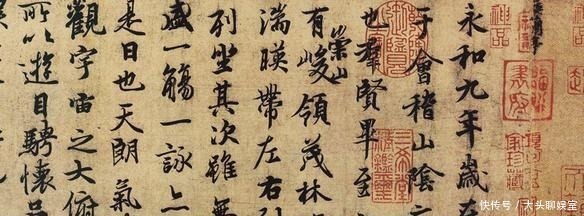 永和九年歲
于會稽山陰
也羣賢畢至
有崇山峻領茂林
湍暎帶左右
列坐其次雖
盛一觴一詠
是日也天朗氣
觀宇宙之大俯
所以遊目騁懷
快传号／大头聊娱室